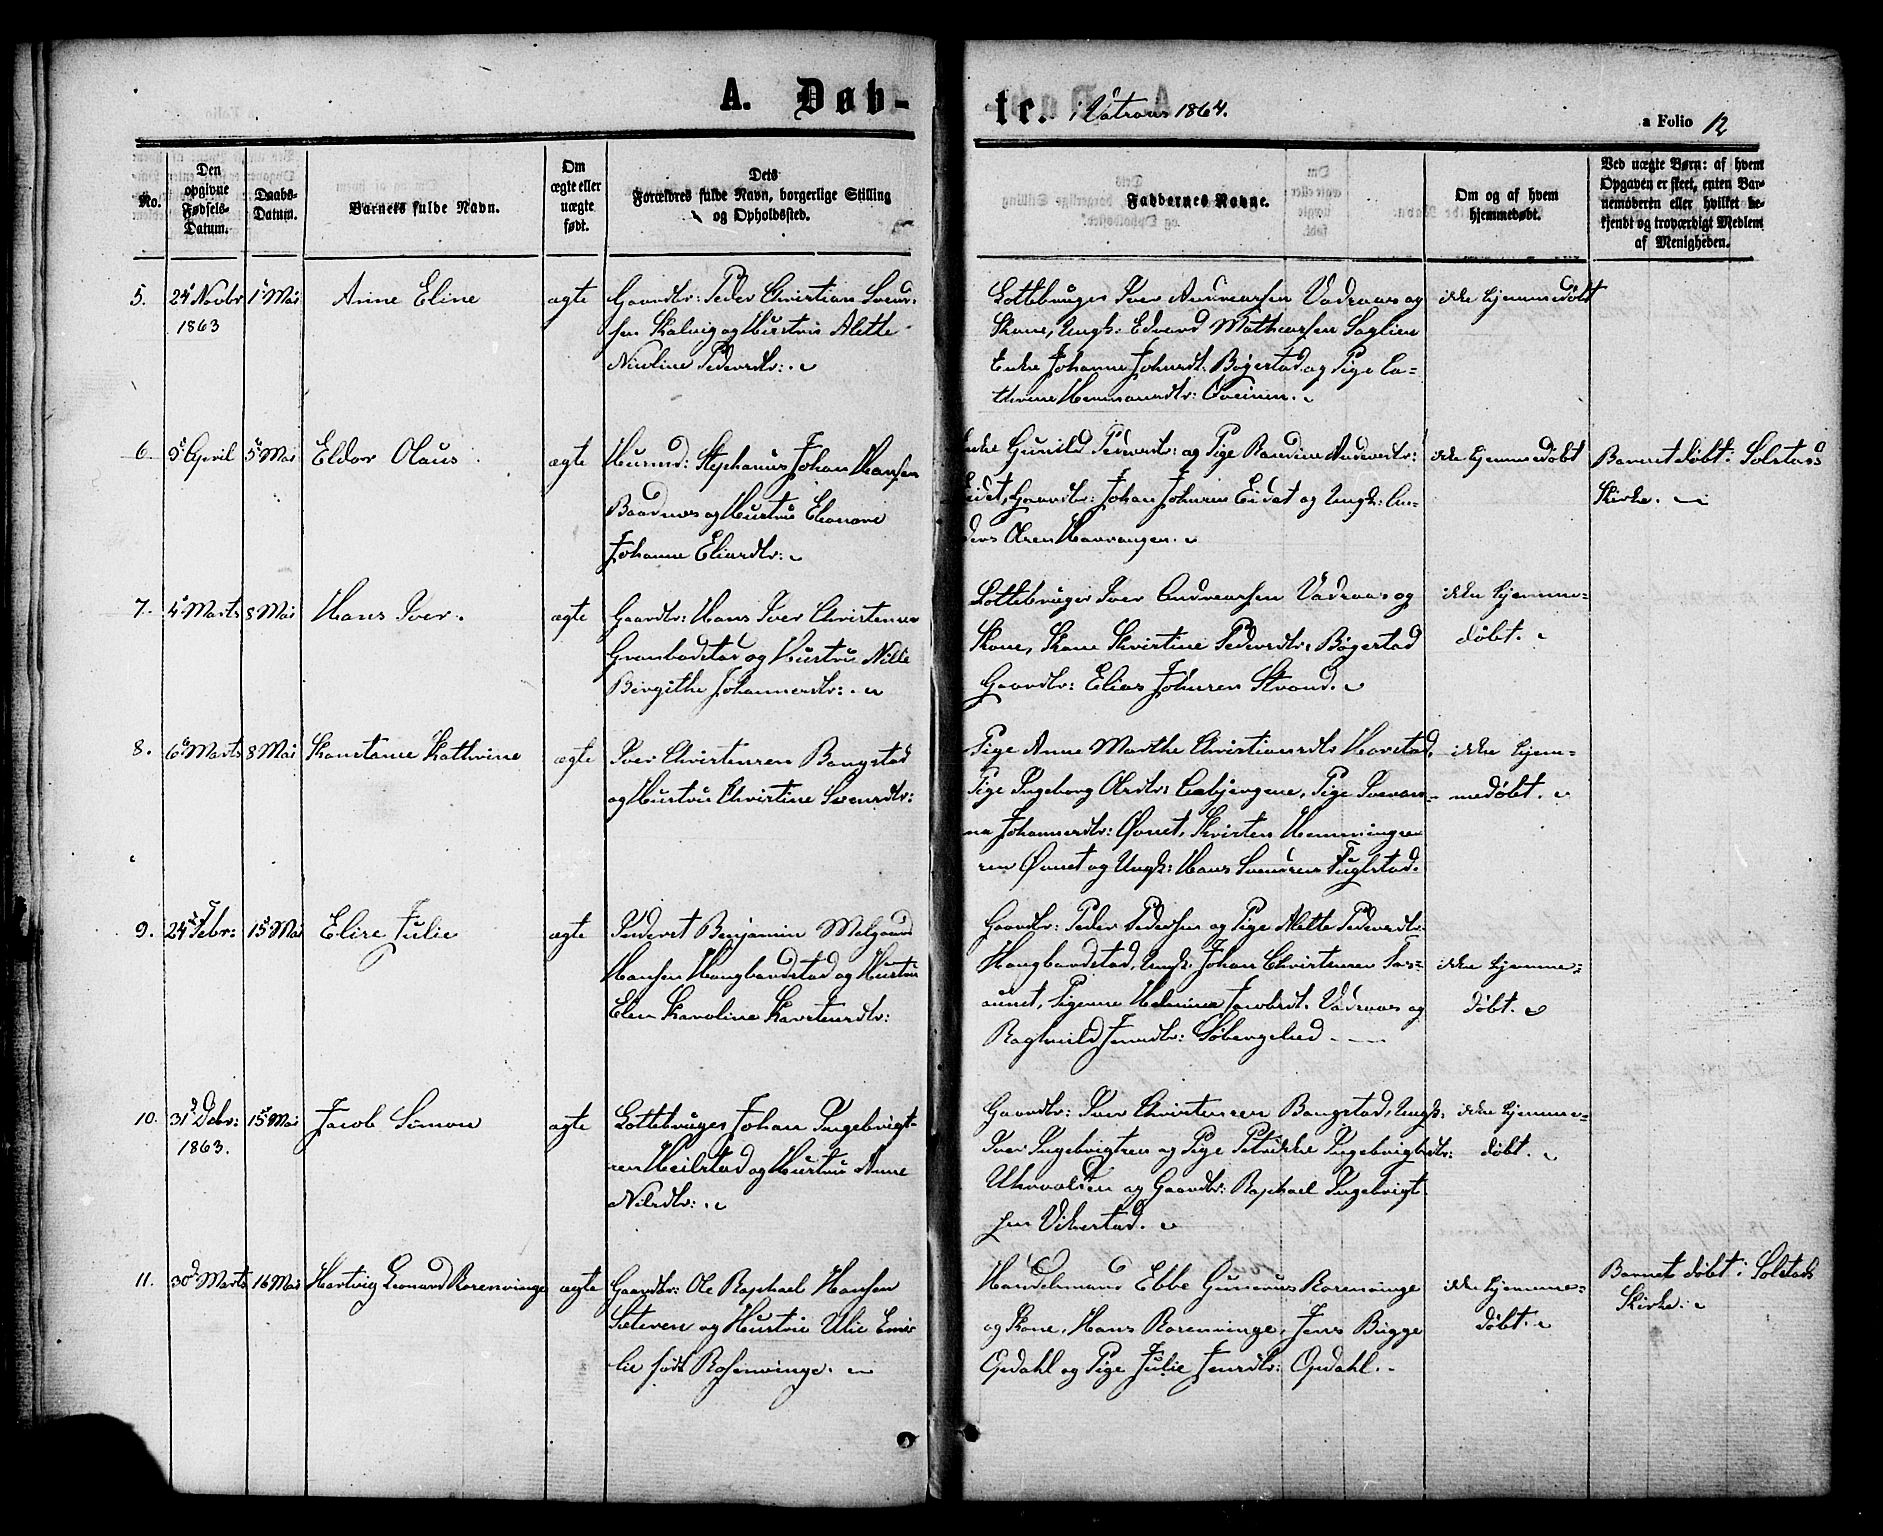 A. Døb-
te. i Vatraas 1864.
a Folio 12
No.
Den
opgivne
Fødsels-
Datum.
Daabs-
Datum.
Barnets fulde Navn.
Om
ægte eller
uægte
født.
Dets
Forældres fulde Navn, borgerlige Stilling
og Opholdssted.
Faddernes Navne.
Om og af hvem
hjemmedøbt.
Ved uægte Børn: af hvem
Opgaven er skeet, enten Bar-
nemoderen eller hvilket be-
kjendt og troværdigt Medlem
af Menigheden.
5.
24 Novbr
1863
1 Mai
Anne Eline
ægte
Gaardbr: Peder Christian Svend-
sen Skalvig og Hustru Alette
Nicoline Pedersdtr:
Lottebruger Iver Andreassen Vadraas og
Kone, Ungk: Edvard Mathiassen
Enke Johanne Johnsdt. Bøgestad og Pige Ca-
thrine Hemmansdtr:
ikke hjemmedøbt
6.
5 April
5 Mai
Eldor Olaus
ægte
Husmd: Stephanus Johan Hansen
Baadnæs og Hustru Eleonore
Johanne Eliasdtr:
Enke Gunild Pedersdtr: og Pige Randine Andersdtr:
Eidet, Gaardbr: Johan Johnsen Eidet og Ungk: An-
ders Olsen Havrangen.
ikke hjemmedøbt
Barnet døbt i Solstads
Kirke.
7.
4 Marts
8 Mai
Hans Iver.
ægte
Gaardbr: Hans Iver Christensen
Grønbodstad og Hustru Nille
Birgithe Johannesdtr:
Lottebruger Iver Andreassen Vadraas og
Kone, Kone Kirstine Pedersdtr: Bøgestad
Gaardbr: Elias Johnsen Strand.
ikke hjemme-
døbt.
8.
6 Marts
8 Mai
Konstanse Kathrine
ægte
Iver Christensen Bangstad
og Hustru Christine Svendsdtr:
Pige Anne Marthe Christiansdtr Horstad,
Pige Ingeborg Olsdtr: Pige
na Johannesdtr: Øvnet, Kirsten Hemmings
sen Øvnet og Ungk: Hans Svendsen Fuglstad.
ikke hjem-
medøbt.
9.
24 Febr:
15 Mai
Elise Julie
ægte
Inderst Benjamin Melgaard
Hansen Haugbordstad og Hustru
Elen Karoline Karstensdtr:
Gaardbr: Peder Pedersen og Pige Alette Pedersdtr.
Haugbordstad, Ungk: Johan Christensen
Pigerne Helmine Jacobsdt. Vadraas og
Ragnild Jensdtr:
ikke hjemme-
døbt.
10.
31 Debr:
1863.
15 Mai
Jacob Simon
ægte
Lottebruger Johan Ingebrigt-
sen Heilstad og Hustru Anne
Nilsdtr:
Gaardbr: Iver Christensen Bangstad, Ungk:
Iver Ingebrigtsen og Pige Petrikke Ingebrigtsdtr:
og Gaardbr: Raphael Ingebrigt
sen Vikestad.
ikke hjemme-
døbt.
11.
30 Marts
16 Mai
Hartvig Leonard Rosenvinge
ægte
Gaardbr: Ole Raphael Hansen
Sæteren og Hustru Ulie Emi-
lie født Rosenvinge.
Handelsmand Ebbe Gunerus Rosenvinge
og Kone, Hans Rosenvinge, Jens Bugge
Opdahl og Pige Julie Jensdtr: Opdahl.
ikke hjemme-
døbt.
Barnet døbt i Solstads
Kirke.